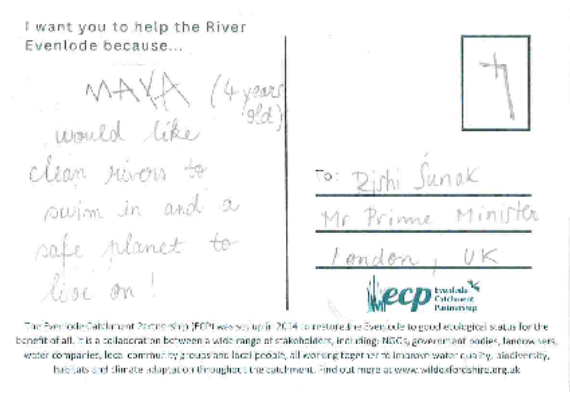 I want you to help the River
Evenlode because...
MAYA (4 years
old)
would like
clean rivers to
swim in and a
safe planet to
live on!
To: Rishi Sunak
Mr Prime Minister
London, UK
ecp Evenlode
Catchment
Partnership
The Evenlode Catchment Partnership (ECP) was set up in 2014 to restore the Evenlode to good ecological status for the
benefit of all. It is a collaboration between a wide range of stakeholders, including: NGOs, government bodies, landowners,
water companies, local community groups and local people, all working together to improve water quality, biodiversity,
habitats and climate adaptation throughout the catchment. Find out more at www.wildoxfordshire.org.uk